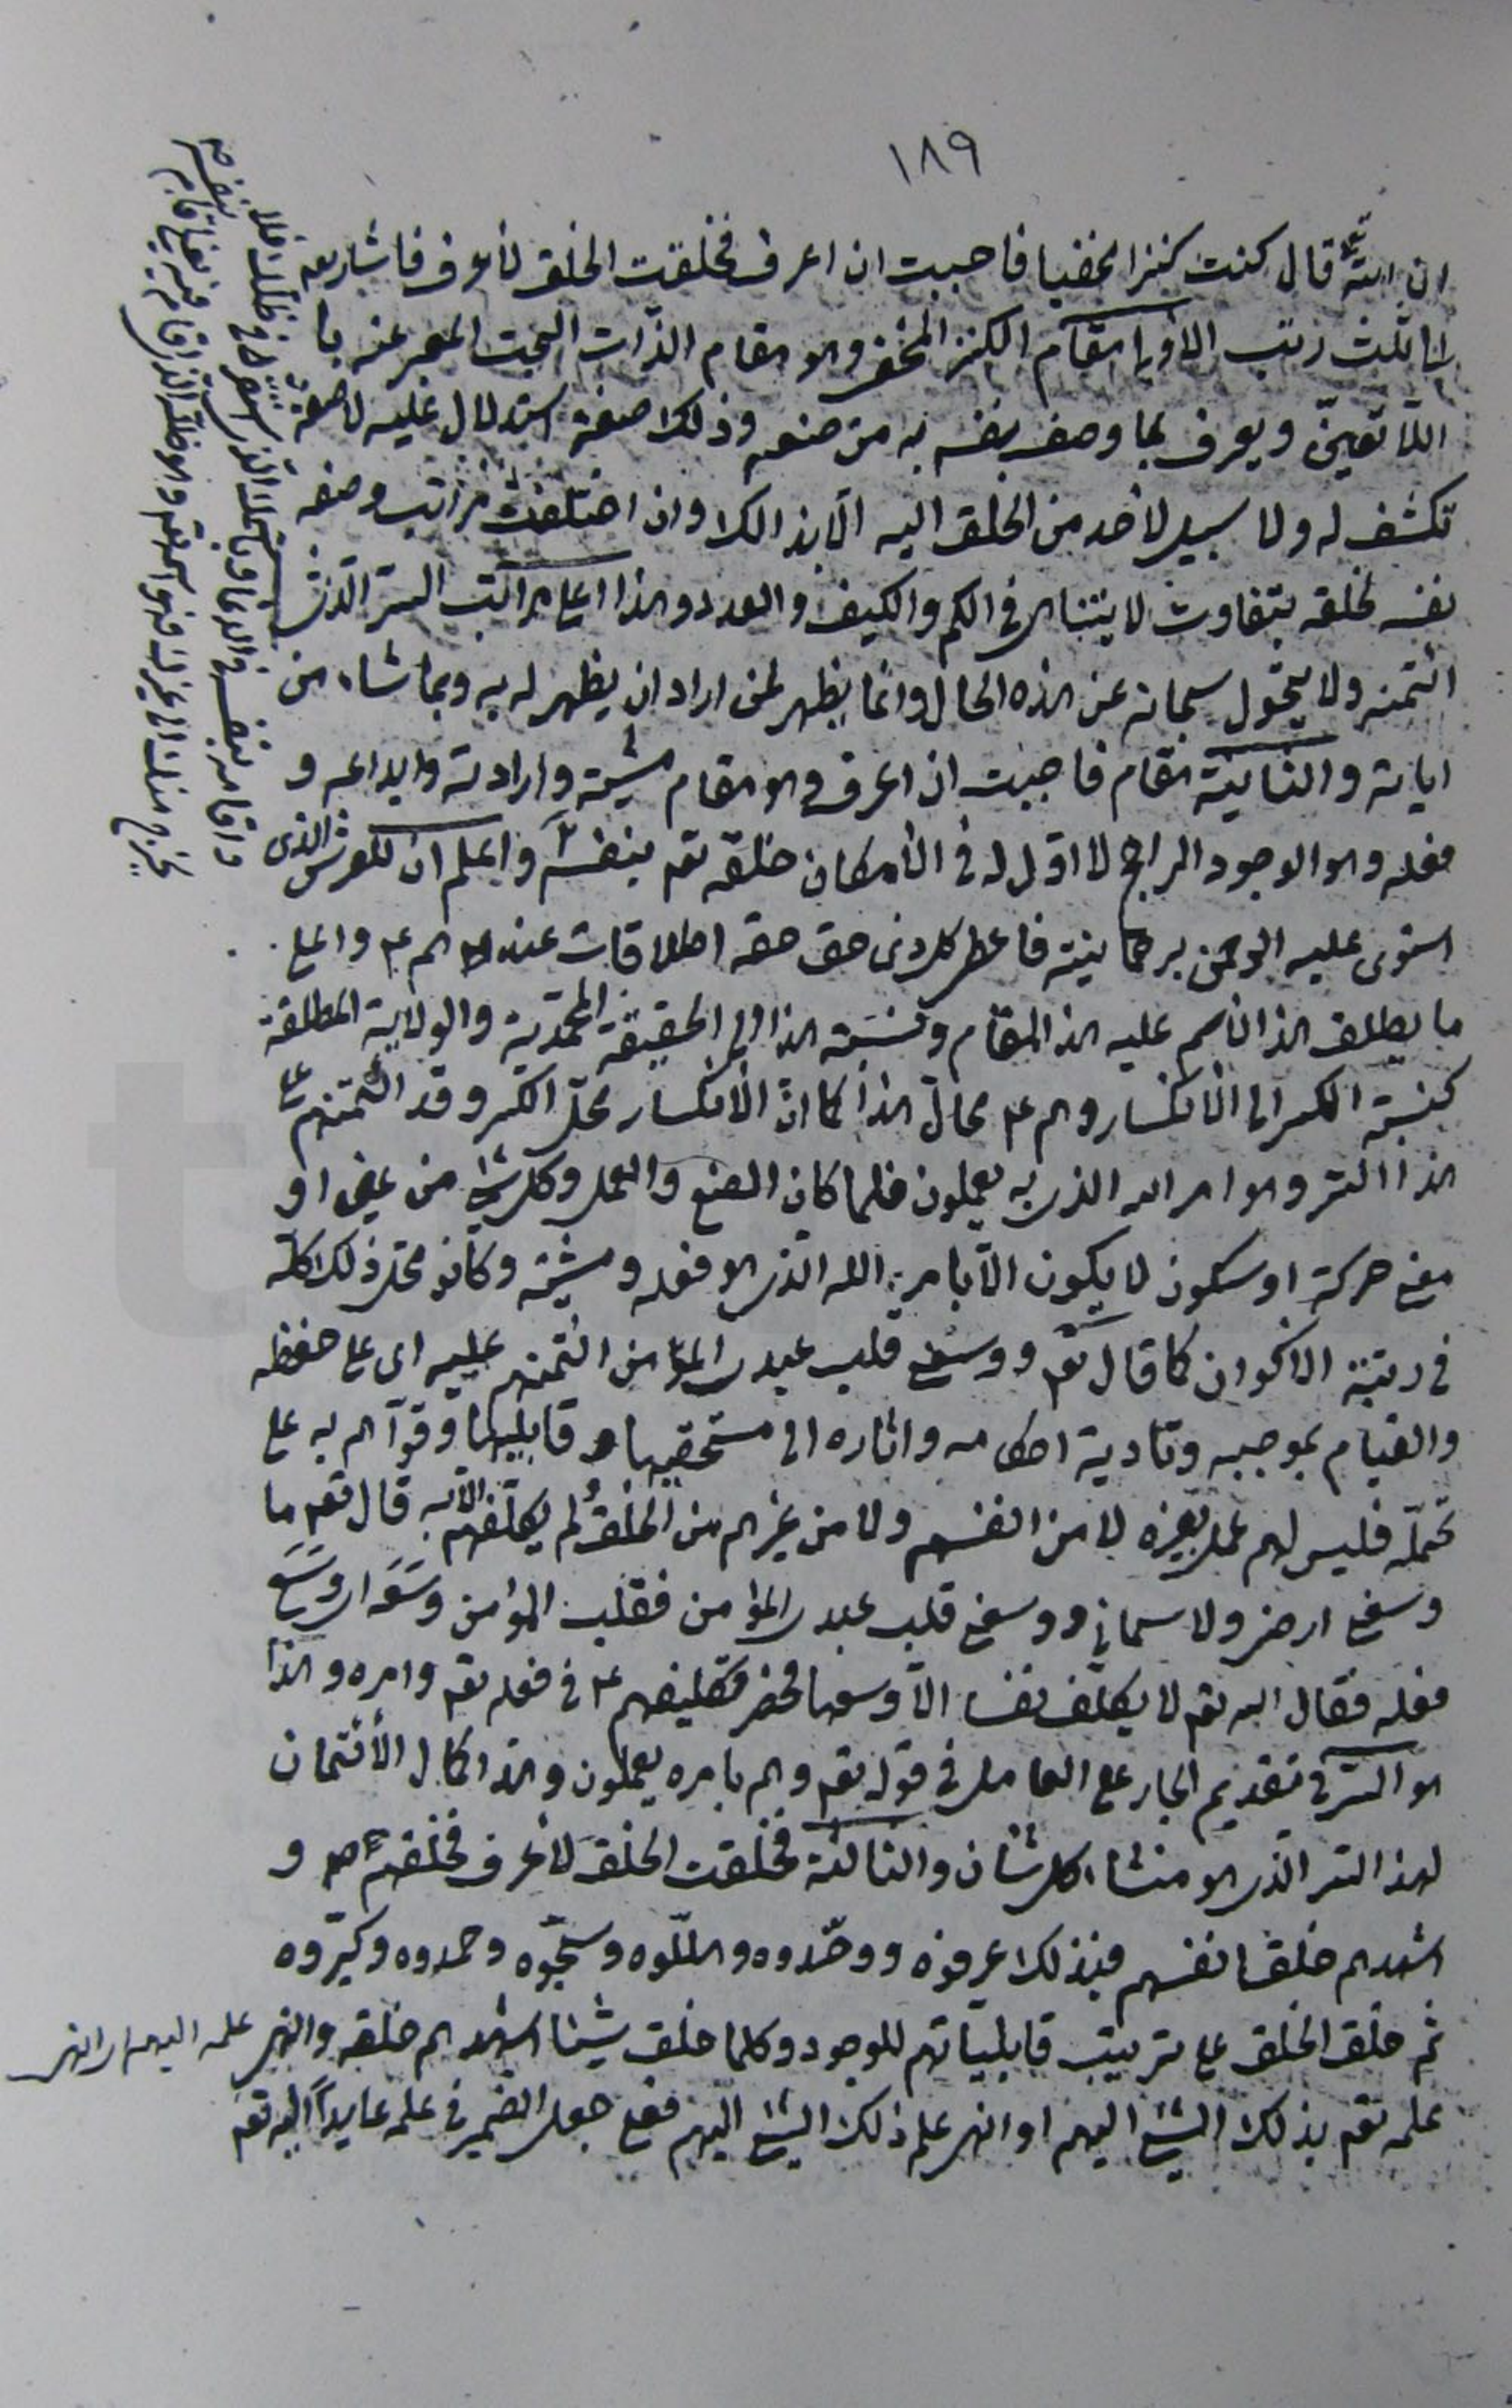 ١٨٩
ان الله تع قال كنت كنزا مخفيا فاحببت ان اعرف فخلقت الخلق لأعرف فاشار تعه
الى ثلث رتب الاولى مقام الكنز المخفى وهو مقام الذّات البحت المعبر عنه با
اللّا تعيّن ويعرف بما وصف نفسه به من صنعه وذلك صفة استدلال عليه لا صفة
تكشف له ولا سبيل لأحد من الخلق اليه الّا بذالك وان اختلفت مراتب وصفه
نفسه لخلقه بتفاوت لا يتناهى فى الكم والكيف والعدد وهذا اعلى مراتب السّر الّذى
ائتمنه ولا يتحول سبحانه عن هذه الحال وانما يظهر لمن اراد ان يظهر له به وبما شاء من
اياته والثانية مقام فاحببت ان اعرف وهو مقام مشيّته وارادته وابداعه و
فعله وهو الوجود الراجح لا اوّل له فى الأمكان خلقه تعه بنفسه واعلم ان للعرش الّذى
استوى عليه الرحمن برحمانيته فاعطى كل ذى حق حقه اطلاقات عندهم ع واعلى
ما يطلق هذا الأسم عليه هذا المقام ونسبة هذا الى الحقيقة المحمّدية والولاية المطلقة
كنسبة الكسر الى الأنكسار وهم ع محالّ هذا كما انّ الأنكسار محلّ الكسر وقد ائتمنهم على
هذا السّر وهو امر الله الذى به يعملون فلما كان الصنع والعمل وكل شئ من عين او
معنى حركة او سكون لا يكون الّا بامر الله الّذى هو فعله ومشيّته وكانو محلّ ذلك كلّه
فى رتبة الاكوان كما قال تعه ووسعنى قلب عبدى المؤمن ائتمنهم عليه اى على حفظه
والقيام بموجبه وتادية احكامه واثاره الى مستحقيها و قابليها وقوّاهم به على
تحمّله فليس لهم عمل بغيره لا من انفسهم ولا من غيرهم من الخلق لم يكلّفهم الّا به قال تعه ما
وسعنى ارضى ولا سمائى ووسعنى قلب عبدى المؤمن فقلب المؤمن وسعه اى وسع
فعله فقال الله تعه لا يكلّف نفسا الّا وسعها فحضر تكليفهم ع فى فعله تعه وامره وهذا
هو السّر فى تقديم الجار على العامل فى قوله تعه وهم بامره يعملون وهذا كمال الأئتمان
لهذا السّر الّذى هو منشاء كل شان والثالثة فخلقت الخلق لأعرف فخلقهم ص و
اشهدهم خلق انفسهم فبذلك عرفوه ووحّدوه وهلّلوه وسبّحوه وحمدوه وكبّروه
ثم خلق الخلق على ترتيب قابليّاتهم للوجود وكلما خلق شيئا اشهدهم خلقه وانهى علمه اليهم اى انهى
علمه تعه بذلك الشئ اليهم او انهى علم ذلك الشئ اليهم فعلى جعل الضمير فى علمه عايداً اليه تعه